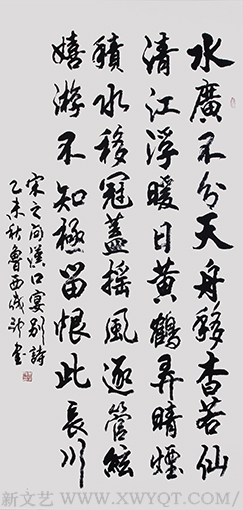 水廣不分天舟移杳若仙
清江浮暖日黃鶴弄晴煙
積水移冠蓋摇風逐管絃
嬉游不知極留恨此長川
宋之问漢口宴别詩
乙未秋魯西成書
新文艺 WWW.XWYQT.COM/